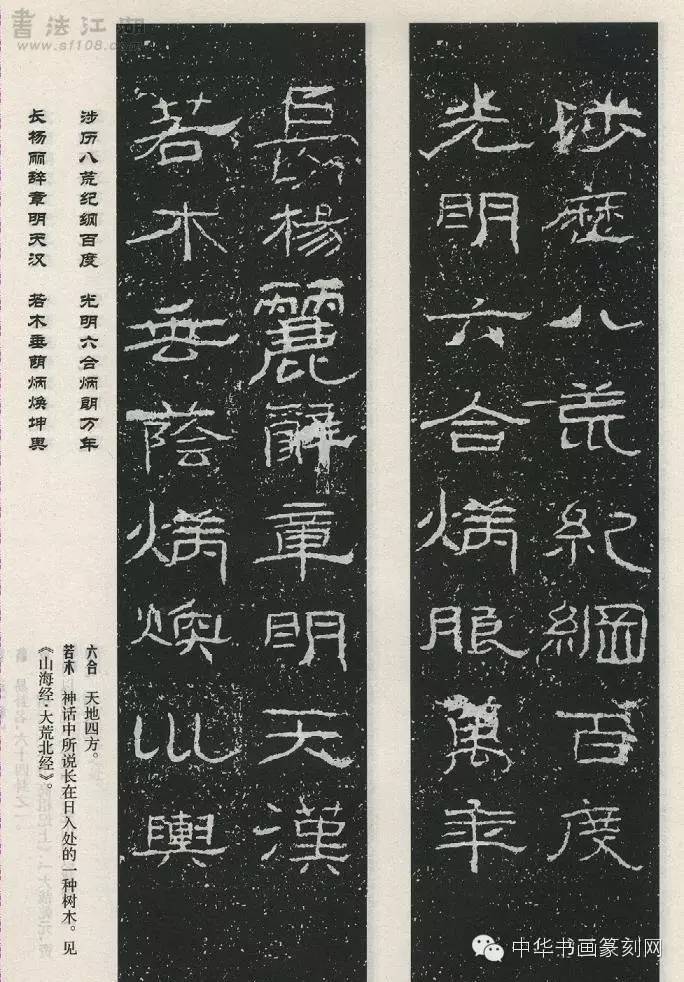 書法江湖
www.sf108.com
涉歷八荒紀綱百度
光明六合炳朖萬年
長楊麗辭章明天漢
若木垂蔭炳煥巛輿
涉历八荒纪纲百度 光明六合炳朗万年
长杨丽辞章明天汉 若木垂荫炳焕坤舆
六合 天地四方。
若木 神话中所说长在日入处的一种树木。见
《山海经·大荒北经》。
中华书画篆刻网